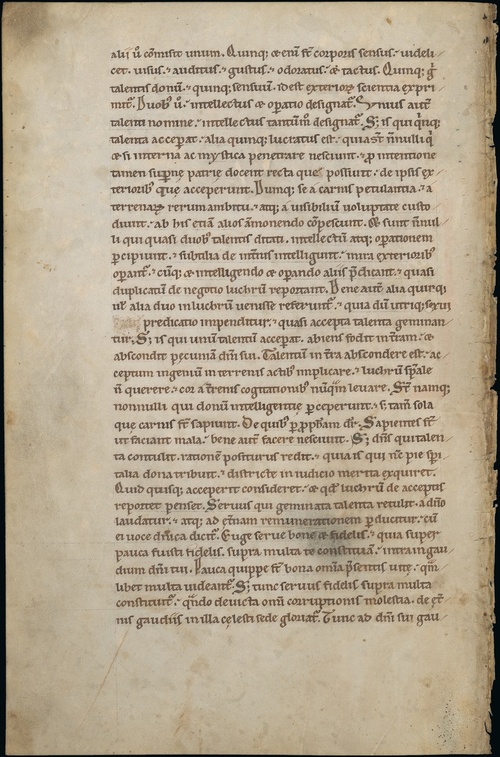 alii ů cōmisit unum. Quinq; & eni ſt corporis sensus. uideli
cet. uisus. auditus. gustus. odoratus. & tactus. Quinq; g̊
talentis donū. quinq; sensuū. id est exterioꝝ scientia expri
mit̃. Duob; ů. intellectus & oꝑatio designat̃. Unius aut̃
talenti nomine. intellectus tantūm̊ designat̃. S; is qui q̇nq;
talenta acceꝑat. alia quinq; lucratus est. quia st̃ n̄nulli q̇
& si interna ac mystica penetrare nesciunt. ꝓ intentione
tamen suꝑnę patrię docent recta quos possunt. de ipsis ex
teriorib; que acceperunt. Dumq; se a carnis petulantia. a
terrenaꝝ rerum ambitu. atq; a uisibiliū uoluptate custo
diunt. ab his etiā alios ammonendo cōpescunt. Et sunt n̄nul
li qui quasi duob; talentis ditati. intellectū atq; oꝑationem
ꝑcipiunt. subtilia de int̃nis intelligunt. mira exteriorib;
oꝑant̃. cūq; & intelligendo & oꝑando aliis p̄dicant. quasi
duplicatū de negotio luchrū reportant. Bene aut̃ alia quinq;
uł alia duo in luchrū uenisse referunt̃. quia dū utriq; sexui
predicatio impenditur. quasi accepta talenta geminan
tur. S; is qui unū talentū acceꝑat. abiens fodit in t̃ram. &
abscondit pecuniā dn̄i sui. Talentū in t̃ra abscondere est. ac
ceptum ingeniū in terrenis actib; implicare. luchrū sp̄ale
n̄ querere. cor a t̃renis cogitationib; nūq̄m leuare. St̃ namq;
nonnulli qui donū intelligentię ꝑceperunt. s; tam̄ sola
que carnis st̃ sapiunt. De quib; ꝑ ꝓph̄am dr̄. Sapientes st̃
ut faciant mala. bene aut̃ facere nescierunt. S; dn̄s qui talen
ta contulit. rationē positurus redit. quia is qui nc̄ pie spi
talia dona tribuit. districte in iudicio merita exquiret.
Quid quisq; acceperit considerat. & qd̄ luchrū de acceptis
reportet penset. Seruus qui geminata talenta retulit. a dn̄o
laudatur. atq; ad et̃nam remunerationem ꝑducitur. cū
ei uoce dn̄ica dicit̃. Euge serue bone & fidelis. quia super
pauca fuisti fidelis. supra multa te constituā. intra in gau
dium dn̄i tui. Pauca quippe st̃ bona om̄ia p̄sentis uite. q̄m
libet multa uideant̃. S; tunc seruus fidelis supra multa
constituit̃. q̄ndo deuicta omī corruptionis molestia. de et̃
nis gaudiis in illa cęlesti sede gloriat̃. Tunc ad dn̄i sui gau